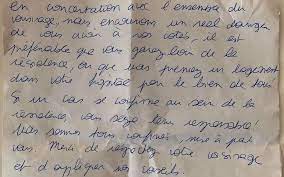 en concertation avec l'ensemble du
voisinage, nous encourons un réel danger
de vous avoir à nos côtés, il est
préférable que vous gariez loin de la
résidence, ou que vous preniez un logement
dans votre hôpital pour le bien de tous
Si un cas se confirme au sein de la
résidence, vous serez tenu responsable!
Nous sommes tous confinés, mise à part
vous. Merci de respecter votre voisinage
et d'appliquer nos conseils.